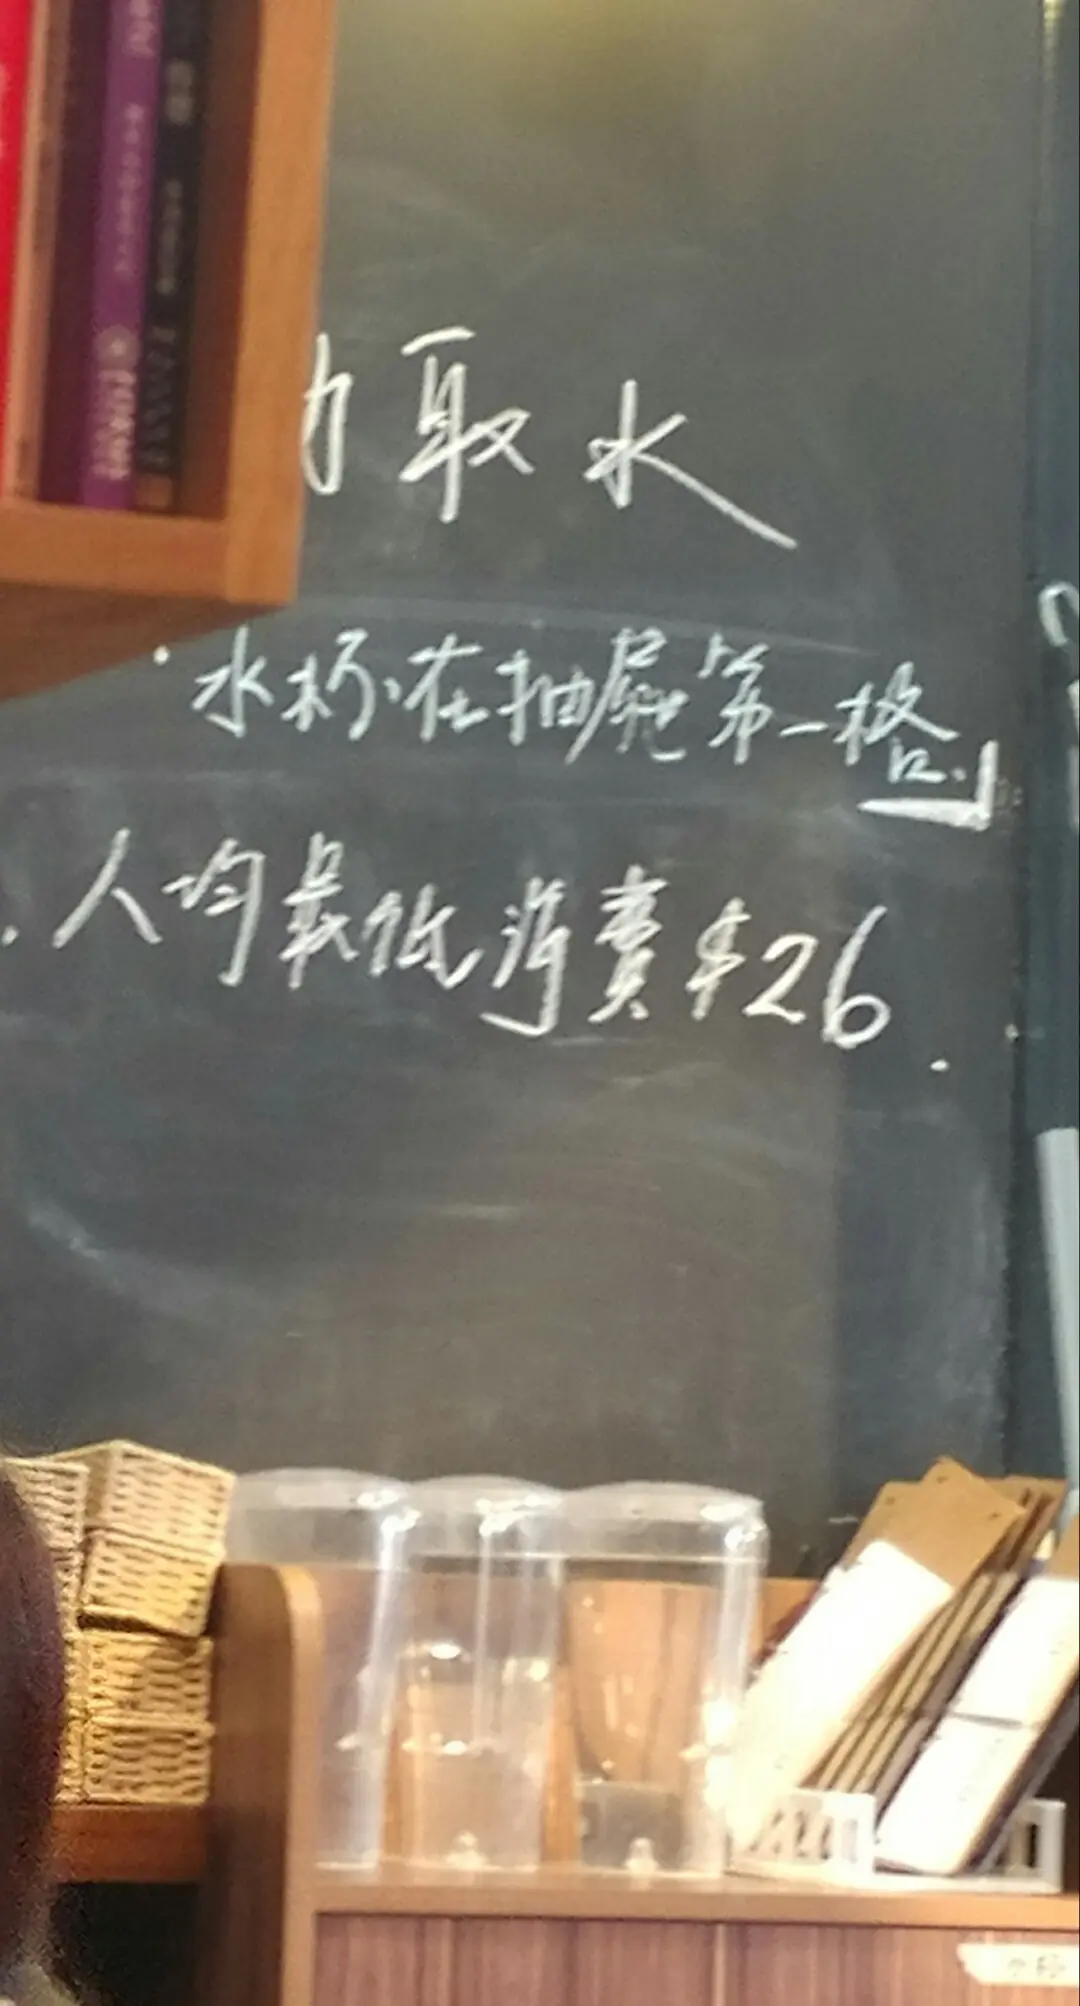 取水
·水杯在抽屜第一格」
·人均最低消費$26.